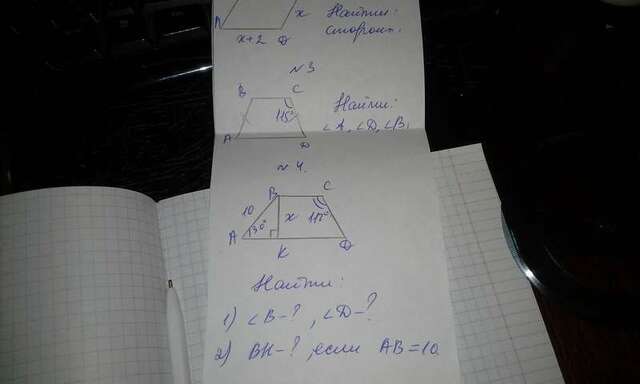 A
x
x+2
D
Найти:
сторон.
№3
B
C
115°
A
D
Найти:
∠A, ∠D, ∠B.
№4.
B
C
10
x
117°
A
30°
K
D
Найти:
1) ∠B-?, ∠D-?
2) BK-?, если AB=10